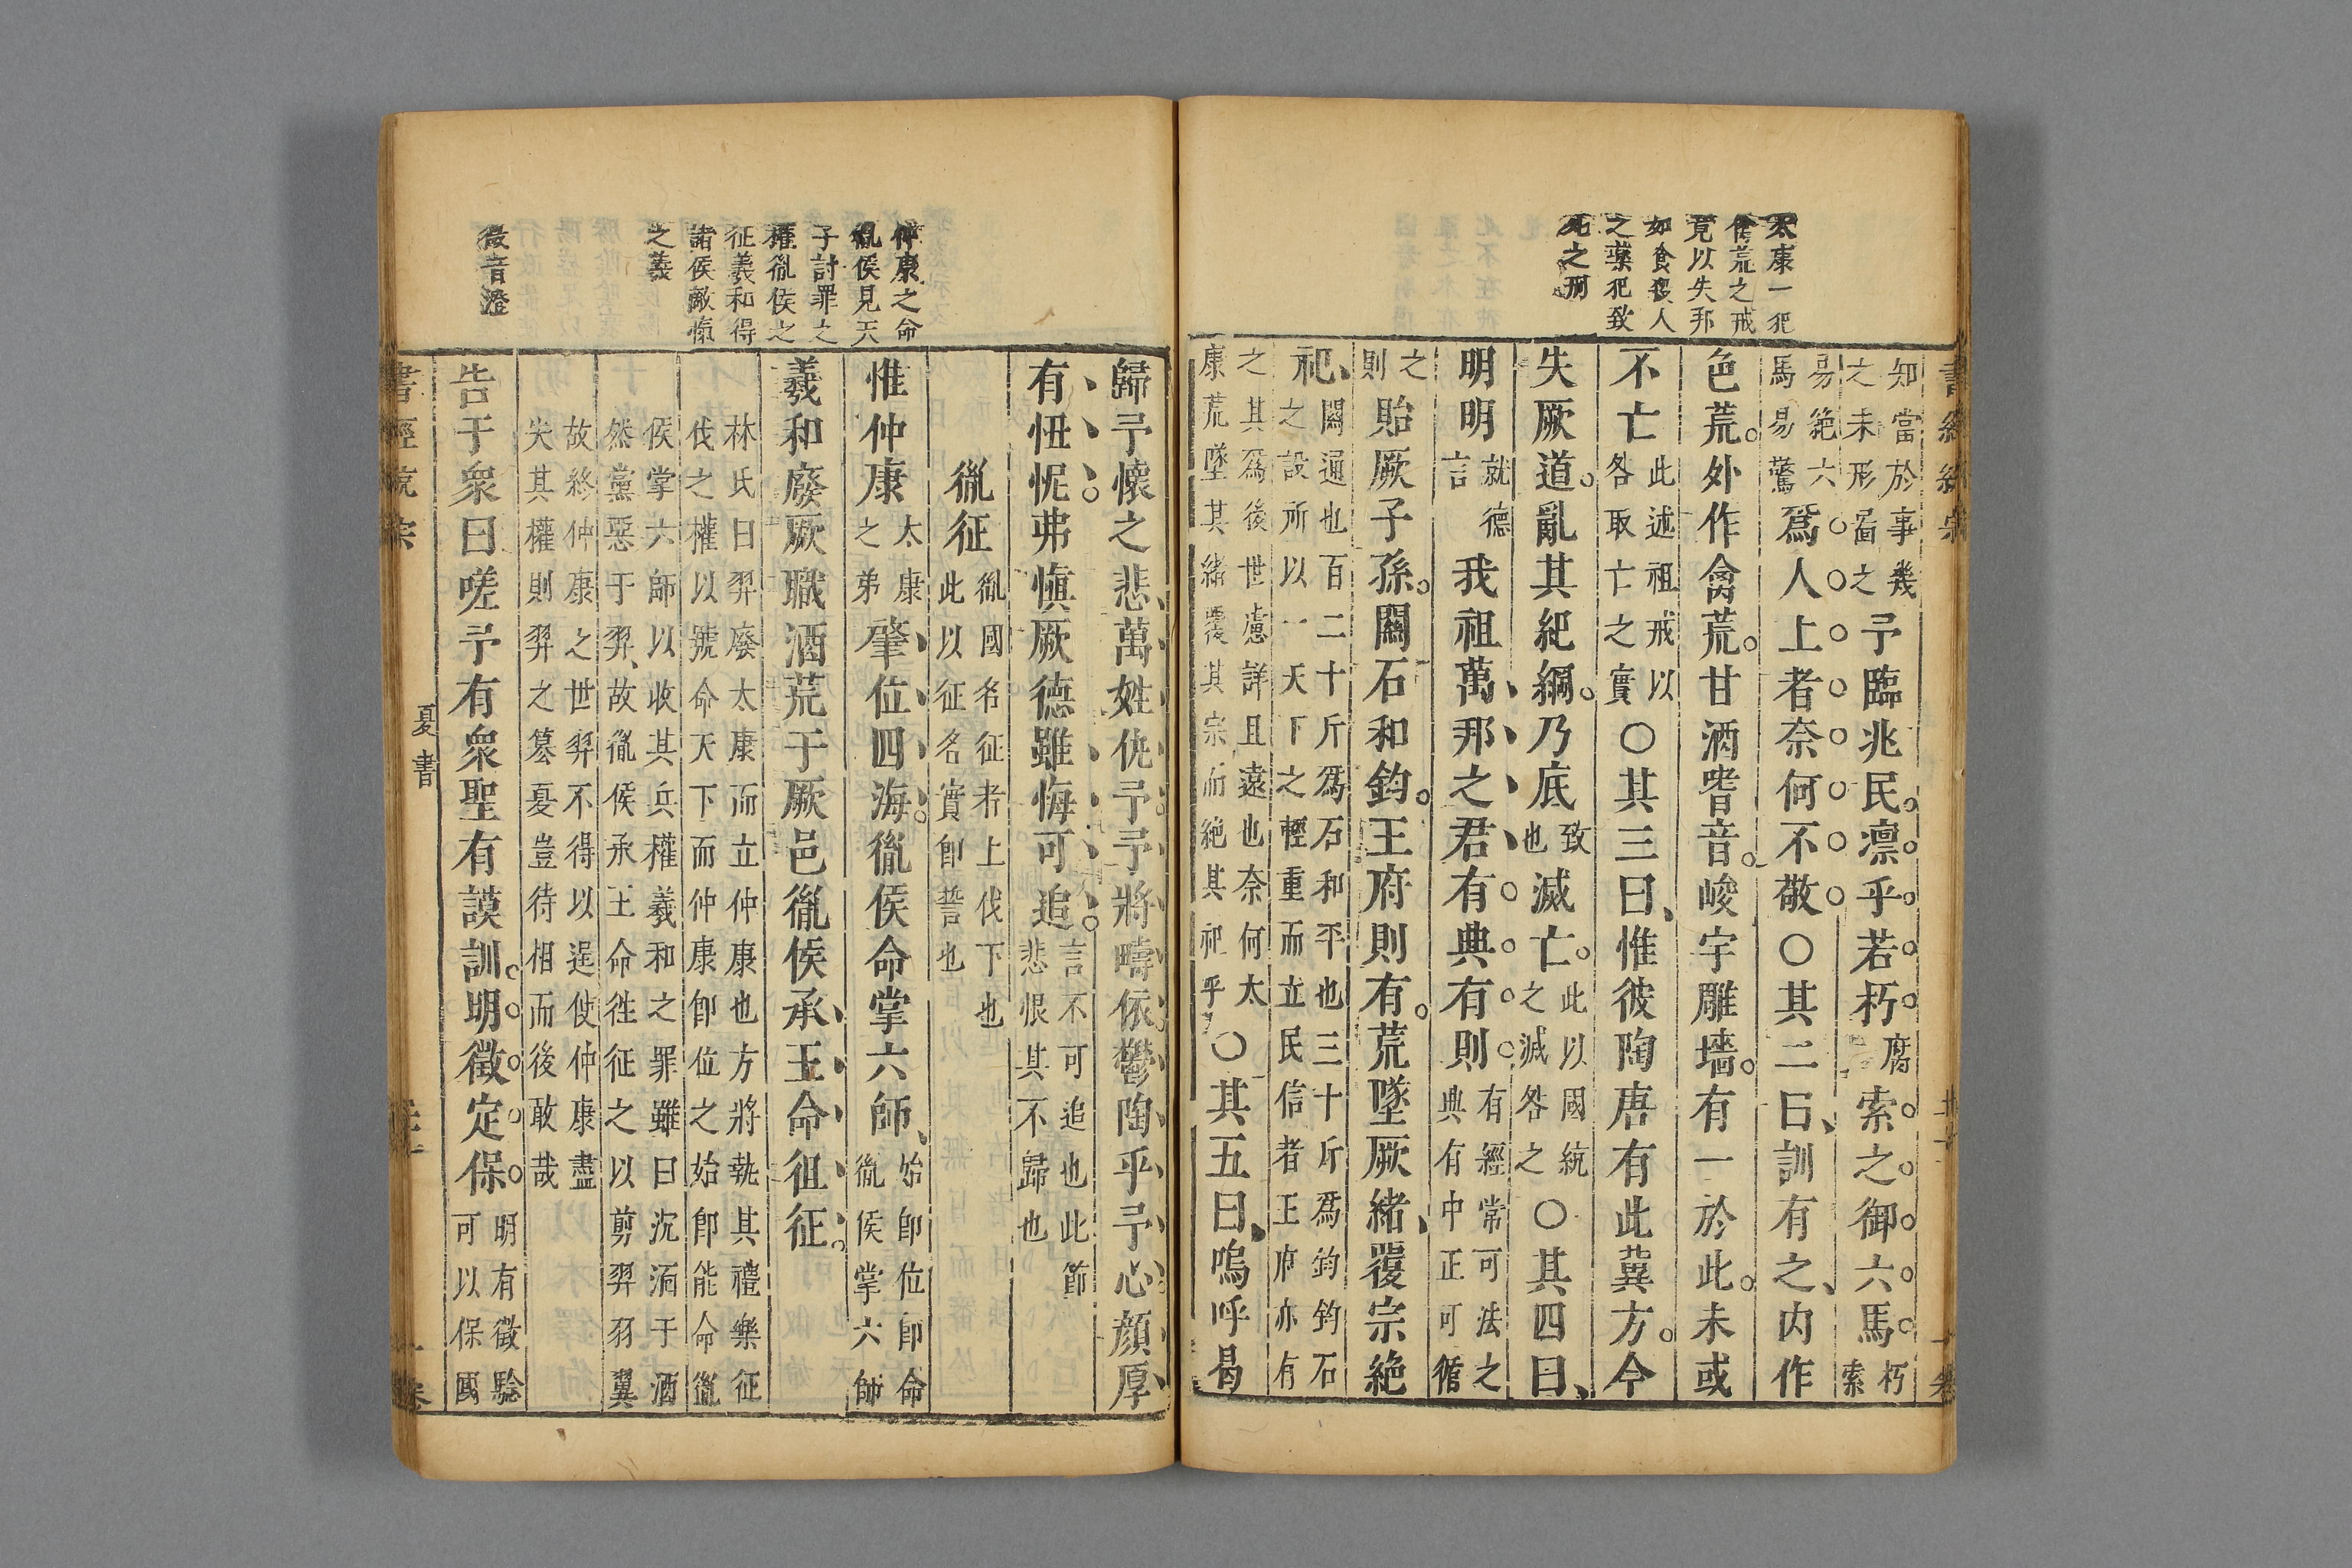 太康一犯
禽荒之戒
竟以失邦
如食殺人
之藥犯致
死之刑
知當於事幾
之未形啚之
予臨兆民凛乎若朽
腐
索之御六馬
朽
索
易絶六
馬易驚
爲人上者奈何不敬○其二曰訓有之内作
色荒外作禽荒甘酒嗜音峻宇雕墻有一於此未或
不亡
此述祖戒以
各取亡之實
○其三曰惟彼陶唐有此冀方今
失厥道亂其紀綱乃底
致
也
滅亡
此以國統
之滅咎之
○其四曰
明明
就德
言
我祖萬邦之君有典有則
有經常可法之
典有中正可循
之
則
貽厥子孫關石和鈞王府則有荒墜厥緒覆宗絶
祀
關通也百二十斤爲石和平也三十斤爲鈞鈞石
之設所以一天下之輕重而立民信者王府亦有
之其爲後世慮詳且遠也奈何太
康荒墜其緒覆其宗而絶其祀乎
○其五曰嗚呼曷
書經統宗
仲康之命
胤侯見天
子討罪之
權胤侯之
征羲和得
諸侯敵愾
之義
徵音澄
歸予懷之悲萬姓仇予予將疇依鬱陶乎予心顔厚
有忸怩弗愼厥德雖悔可追
言不可追也此節
悲恨其不歸也
胤征
胤國名征者上伐下也
此以征名實卽誓也
惟仲康
太康
之弟
肇位四海胤侯命掌六師
始卽位卽命
胤侯掌六師
羲和廢厥職酒荒于厥邑胤侯承王命徂征
林氏曰羿廢太康而立仲康也方將執其禮樂征
伐之權以號命天下而仲康卽位之始卽能命胤
侯掌六師以收其兵權羲和之罪雖曰沉湎于酒
然黨惡于羿故胤侯承王命徃征之以剪羿羽翼
故終仲康之世羿不得以逞使仲康盡
失其權則羿之簒夏豈待相而後敢哉
告于衆曰嗟予有衆聖有謨訓明徵定保
明有徵驗
可以保國
書經統宗
夏書